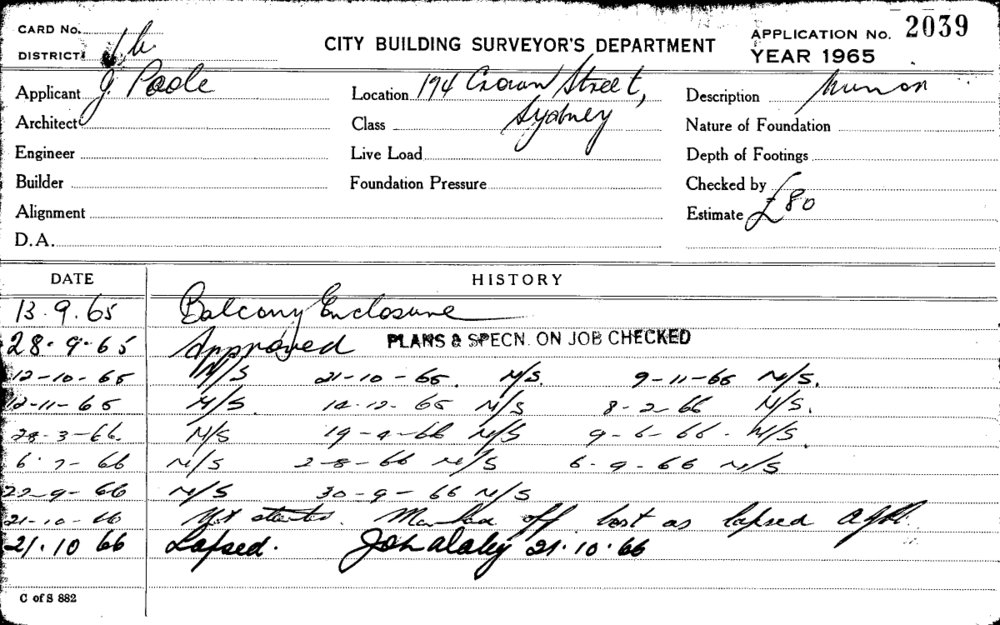 CARD No.
DISTRICT:
CITY BUILDING SURVEYOR'S DEPARTMENT
APPLICATION No. 2039
YEAR 1965
Applicant J. Poole
Location 194 Crown Street,
Sydney
Description
Architect
Class
Nature of Foundation
Engineer
Live Load
Depth of Footings
Builder
Foundation Pressure
Checked by
Alignment
Estimate £80
D.A.
DATE HISTORY
13.9.65 Balcony Enclosure
28.9.65 Approved PLANS & SPECN. ON JOB CHECKED
12-10-65 N/S 21-10-65. N/S. 9-11-65 N/S.
12-11-65 N/S. 14-12-65 N/S 8-2-66 N/S.
28-3-66. N/S 19-4-66 N/S 9-6-66. N/S.
6.7-66 N/S 2-8-66 N/S 6.9.66 N/S
22-9-66 N/S 30-9-66 N/S
21-10-66 Not started. Marked off as lapsed
21.10 66 Lapsed. 21.10.66
C of S 882